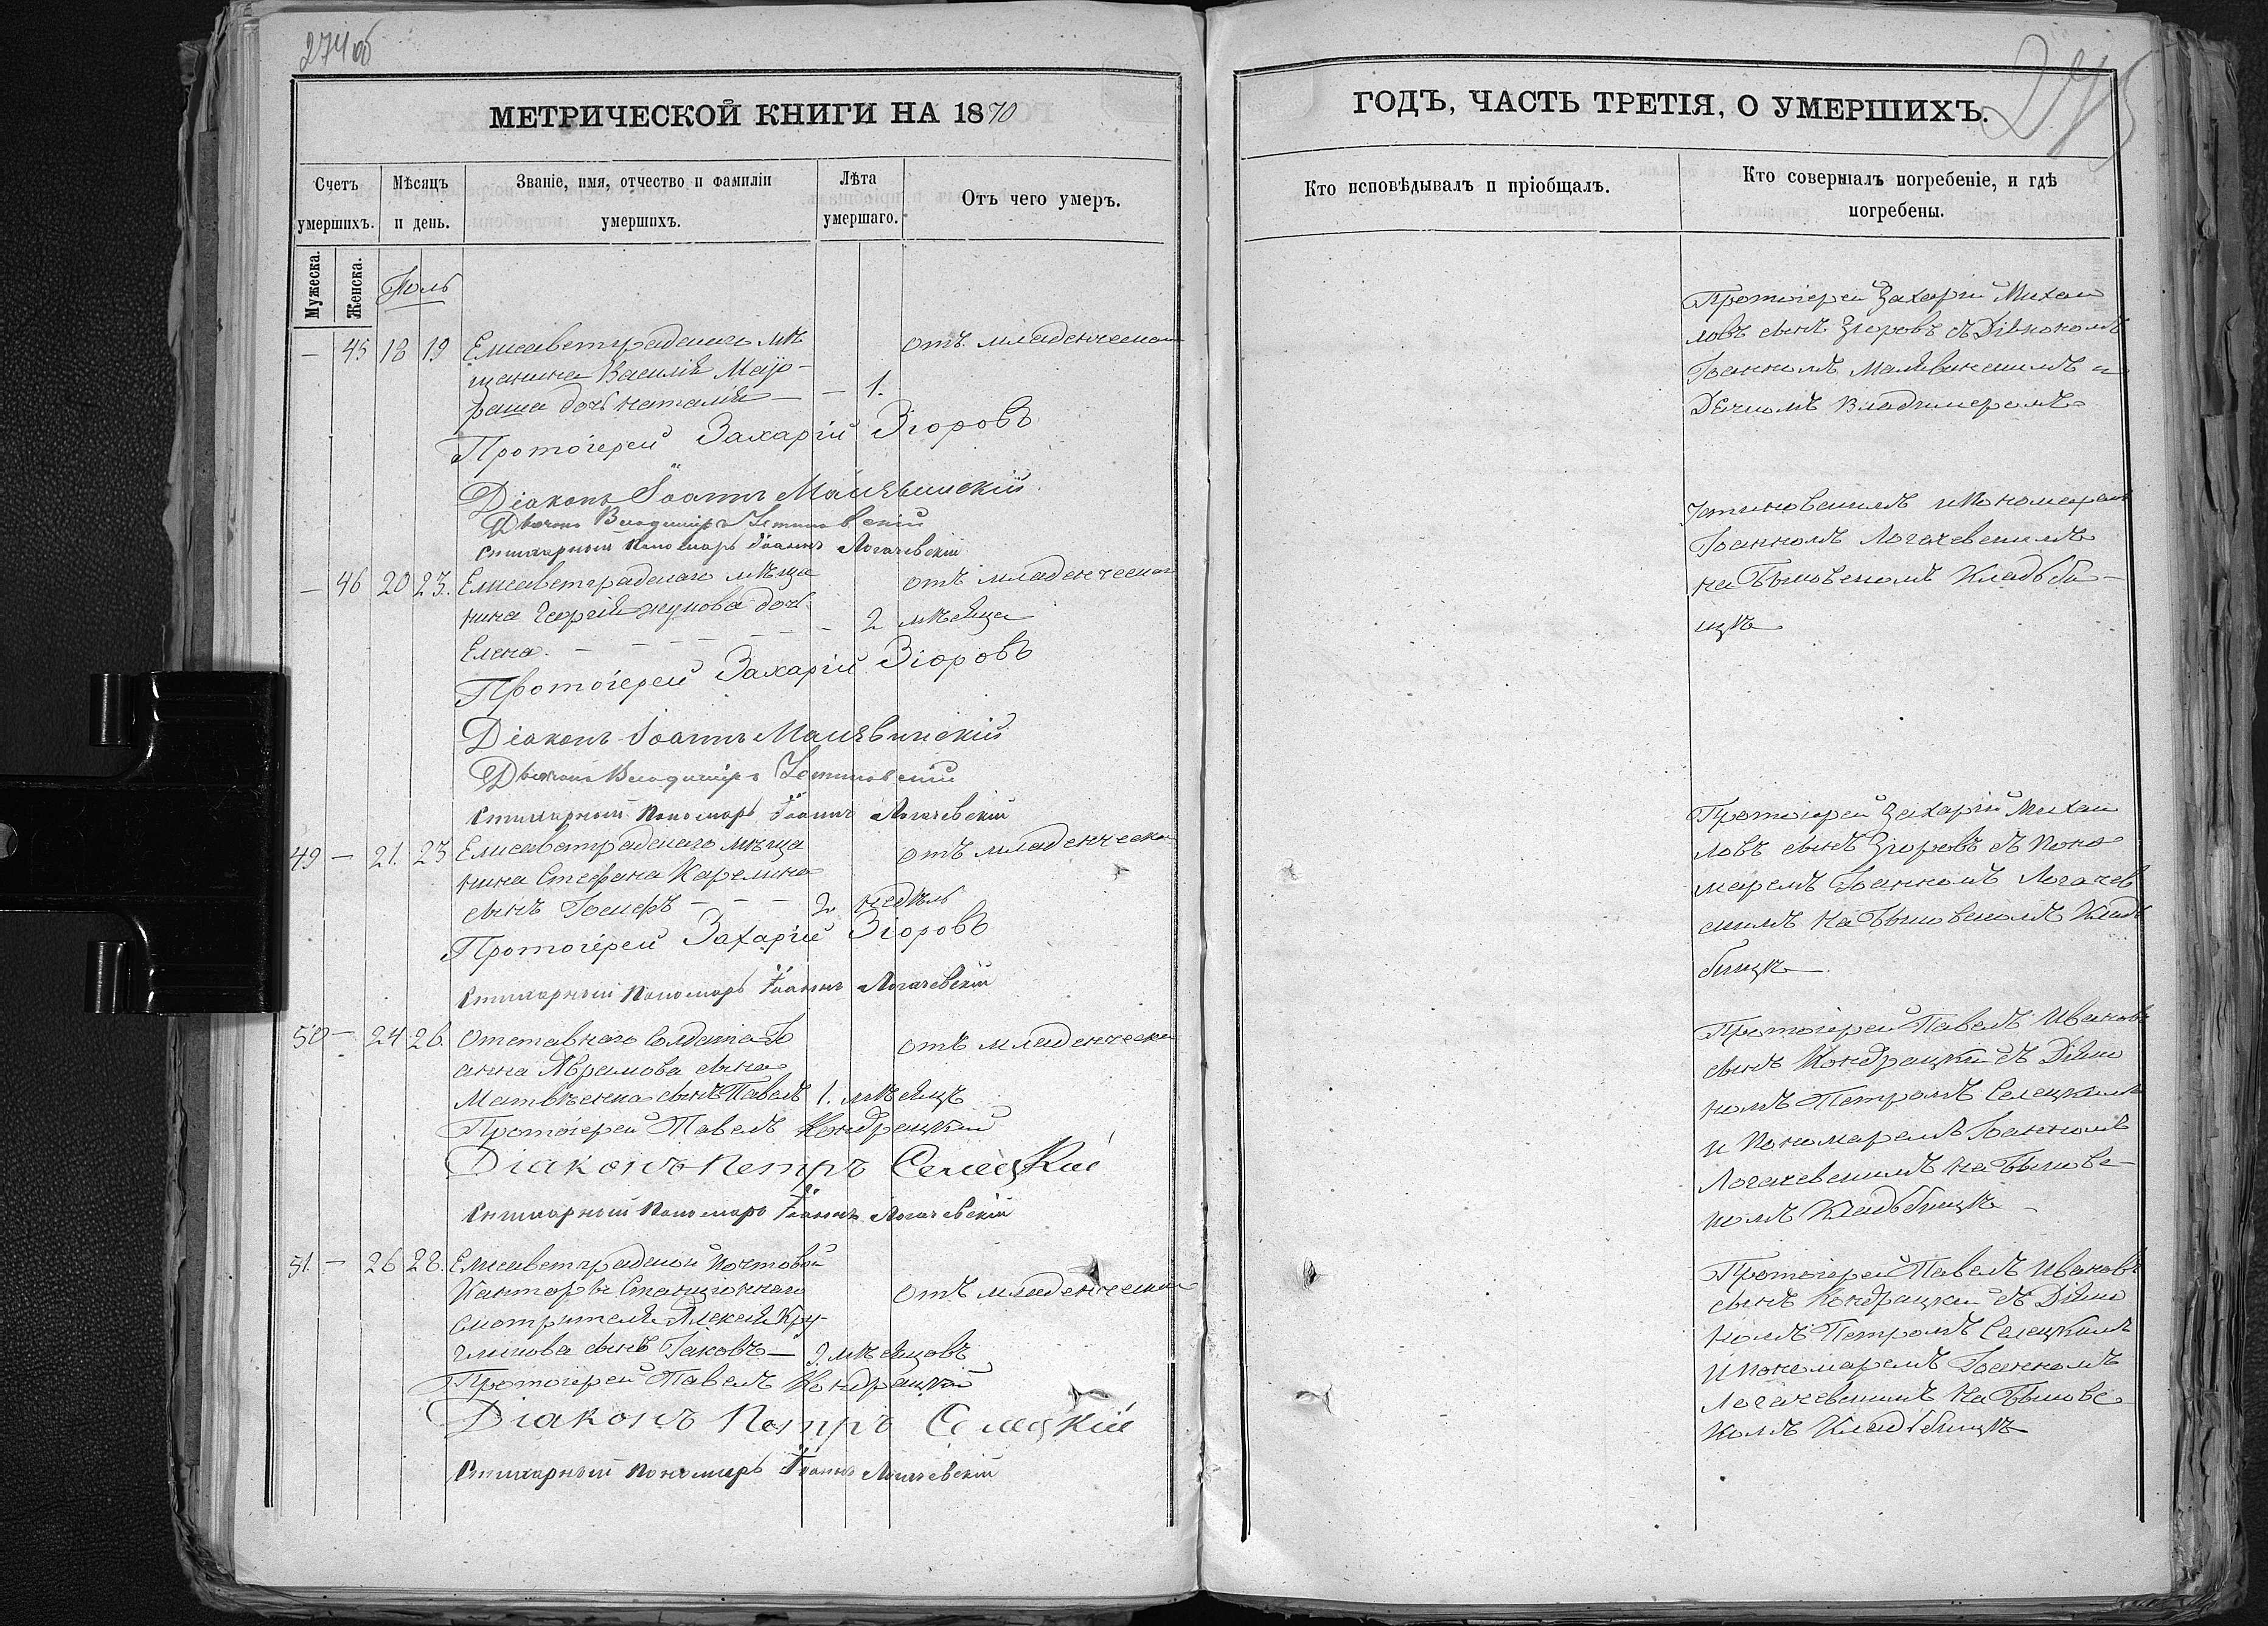 274 об
МЕТРИЧЕСКОЙ КНИГИ НА 1870
Счетъ умершихъ.
Мѣсяцъ и день.
Званіе, имя, отчество и фамиліи умершихъ.
Лѣта умершаго.
Отъ чего умеръ.
Мужеска.
Женска.
Іюль
— 45 18 19 Елисаветградскаго мѣ
щанина Василія
дочь Наталія — — 1.
отъ младенческой
Протоіерей Захарій Зіоровъ
Діаконъ Іоаннъ
Дьячокъ Владиміръ Устиновскій
Стихарный Пономарь Іоаннъ Логачевскій
— 46 20 23. Елисаветградскаго мѣща
нина Георгія Жукова дочь
Елена. — — — — — 2 мѣсяца
отъ младенческой
Протоіерей Захарій Зіоровъ
Діаконъ Іоаннъ
Дьячокъ Владиміръ Устиновскій
Стихарный Пономарь Іоаннъ Логачевскій
49 — 21. 23 Елисаветградскаго мѣща
нина Стефана Карелина
сынъ — — — 2 недѣль
отъ младенческой
Протоіерей Захарій Зіоровъ
Стихарный Пономарь Іоаннъ Логачевскій
50 — 24 26. Отставнаго Солдата Іо
анна Аврамова сына
Матвѣенка сынъ Павелъ 1. мѣсяцъ
отъ младенческой
Протоіерей Павелъ Кондрацкій
Діаконъ Петръ Селецкій
Стихарный Пономарь Іоаннъ Логачевскій
51. — 26 28. Елисаветградской Почтовой
Канторы Станціоннаго
смотрителя Алексѣя Кру-
гликова сынъ Іаковъ — 9. мѣсяцовъ
отъ младенческой
Протоіерей Павелъ Кондрацкій
Діаконъ Петръ Селецкій
Стихарный Пономарь Іоаннъ Логачевскій
275
ГОДЪ, ЧАСТЬ ТРЕТІЯ, О УМЕРШИХЪ.
Кто исповѣдывалъ и пріобщалъ.
Кто совершалъ погребеніе, и гдѣ
погребены.
Протоіерей Захарій Михаи
ловъ сынъ Зіоровъ съ Діякономъ
Іоанномъ и
Дьячкомъ Владимеромъ
Устиновскимъ и Пономаремъ
Іоанномъ Логачевскимъ
на Быковскомъ Кладьби-
щѣ
Протоіерей Захарій Михаи
ловъ сынъ Зіоровъ съ Поно
маремъ Іоанномъ Логачев
скимъ на Быковскомъ Кладь
бищѣ
Протоіерей Павелъ Ивановъ
сынъ Кондрацкій съ Діяко
номъ Петромъ Селецкимъ
и Пономаремъ Іоанномъ
Логачевскимъ на Быковс-
комъ Кладьбищѣ
Протоіерей Павелъ Ивановъ
сынъ Кондрацкій съ Діяко
номъ Петромъ Селецкимъ
и Пономаремъ Іоанномъ
Логачевскимъ на Быковс
комъ Кладьбищѣ